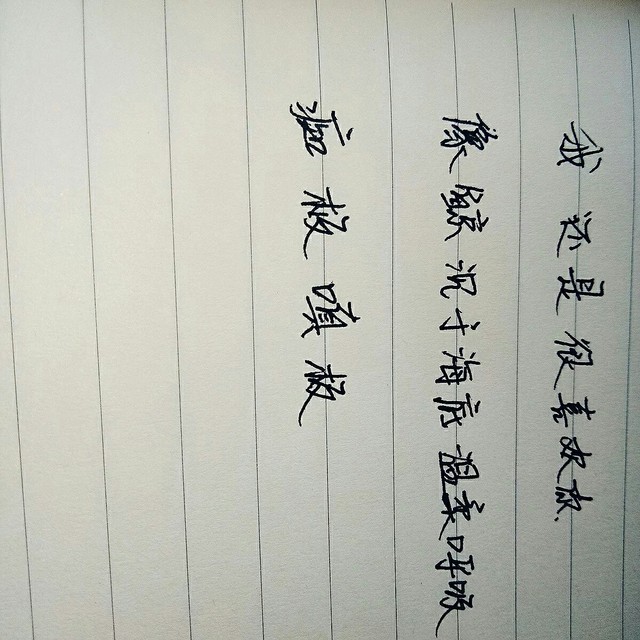 我还是很喜欢你、
像鲸沉于海底温柔呼吸
痴极嗔极